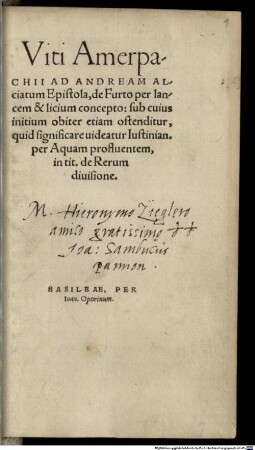 Viti Amerpa-
CHII AD ANDREAM AL-
ciatum Epistola, de Furto per lan-
cem & licium concepto: sub cuius
initium obiter etiam ostenditur,
quid significare uideatur Iustinian.
per Aquam profluentem,
in tit. de Rerum
diuisione.
M. Hieronymo Zieglero
amico gratissimo
Joa: Sambucus
pannon.
BASILEAE, PER
Ioan. Oporinum.